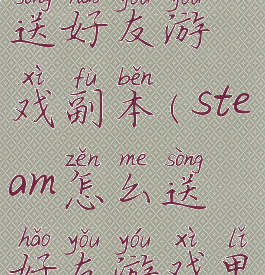 sòng hǎo yǒu yóu
送好友游
xì fù běn
戏副本(ste
zěn me sòng
am怎么送
hǎo yǒu yóu xì lǐ
好友游戏里